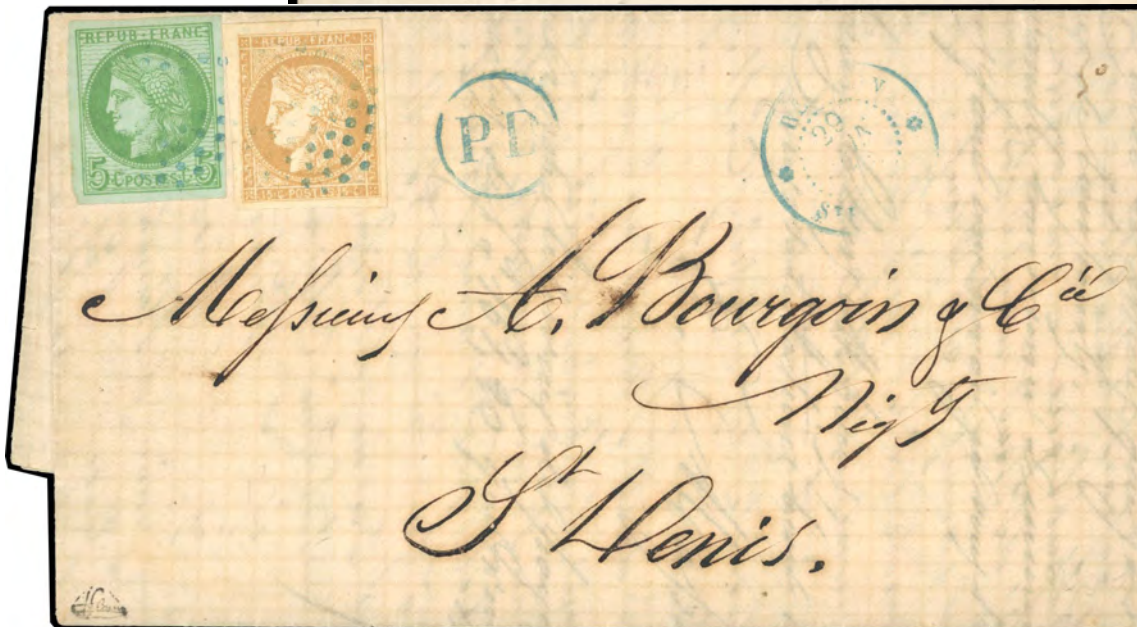 REPUB·FRANC
5·C·POSTES·5
REPUB·FRANC
15·C·POSTES·15·C
PD
20
Messieurs A. Bourgoin & Cie
Nigts
St Denis.